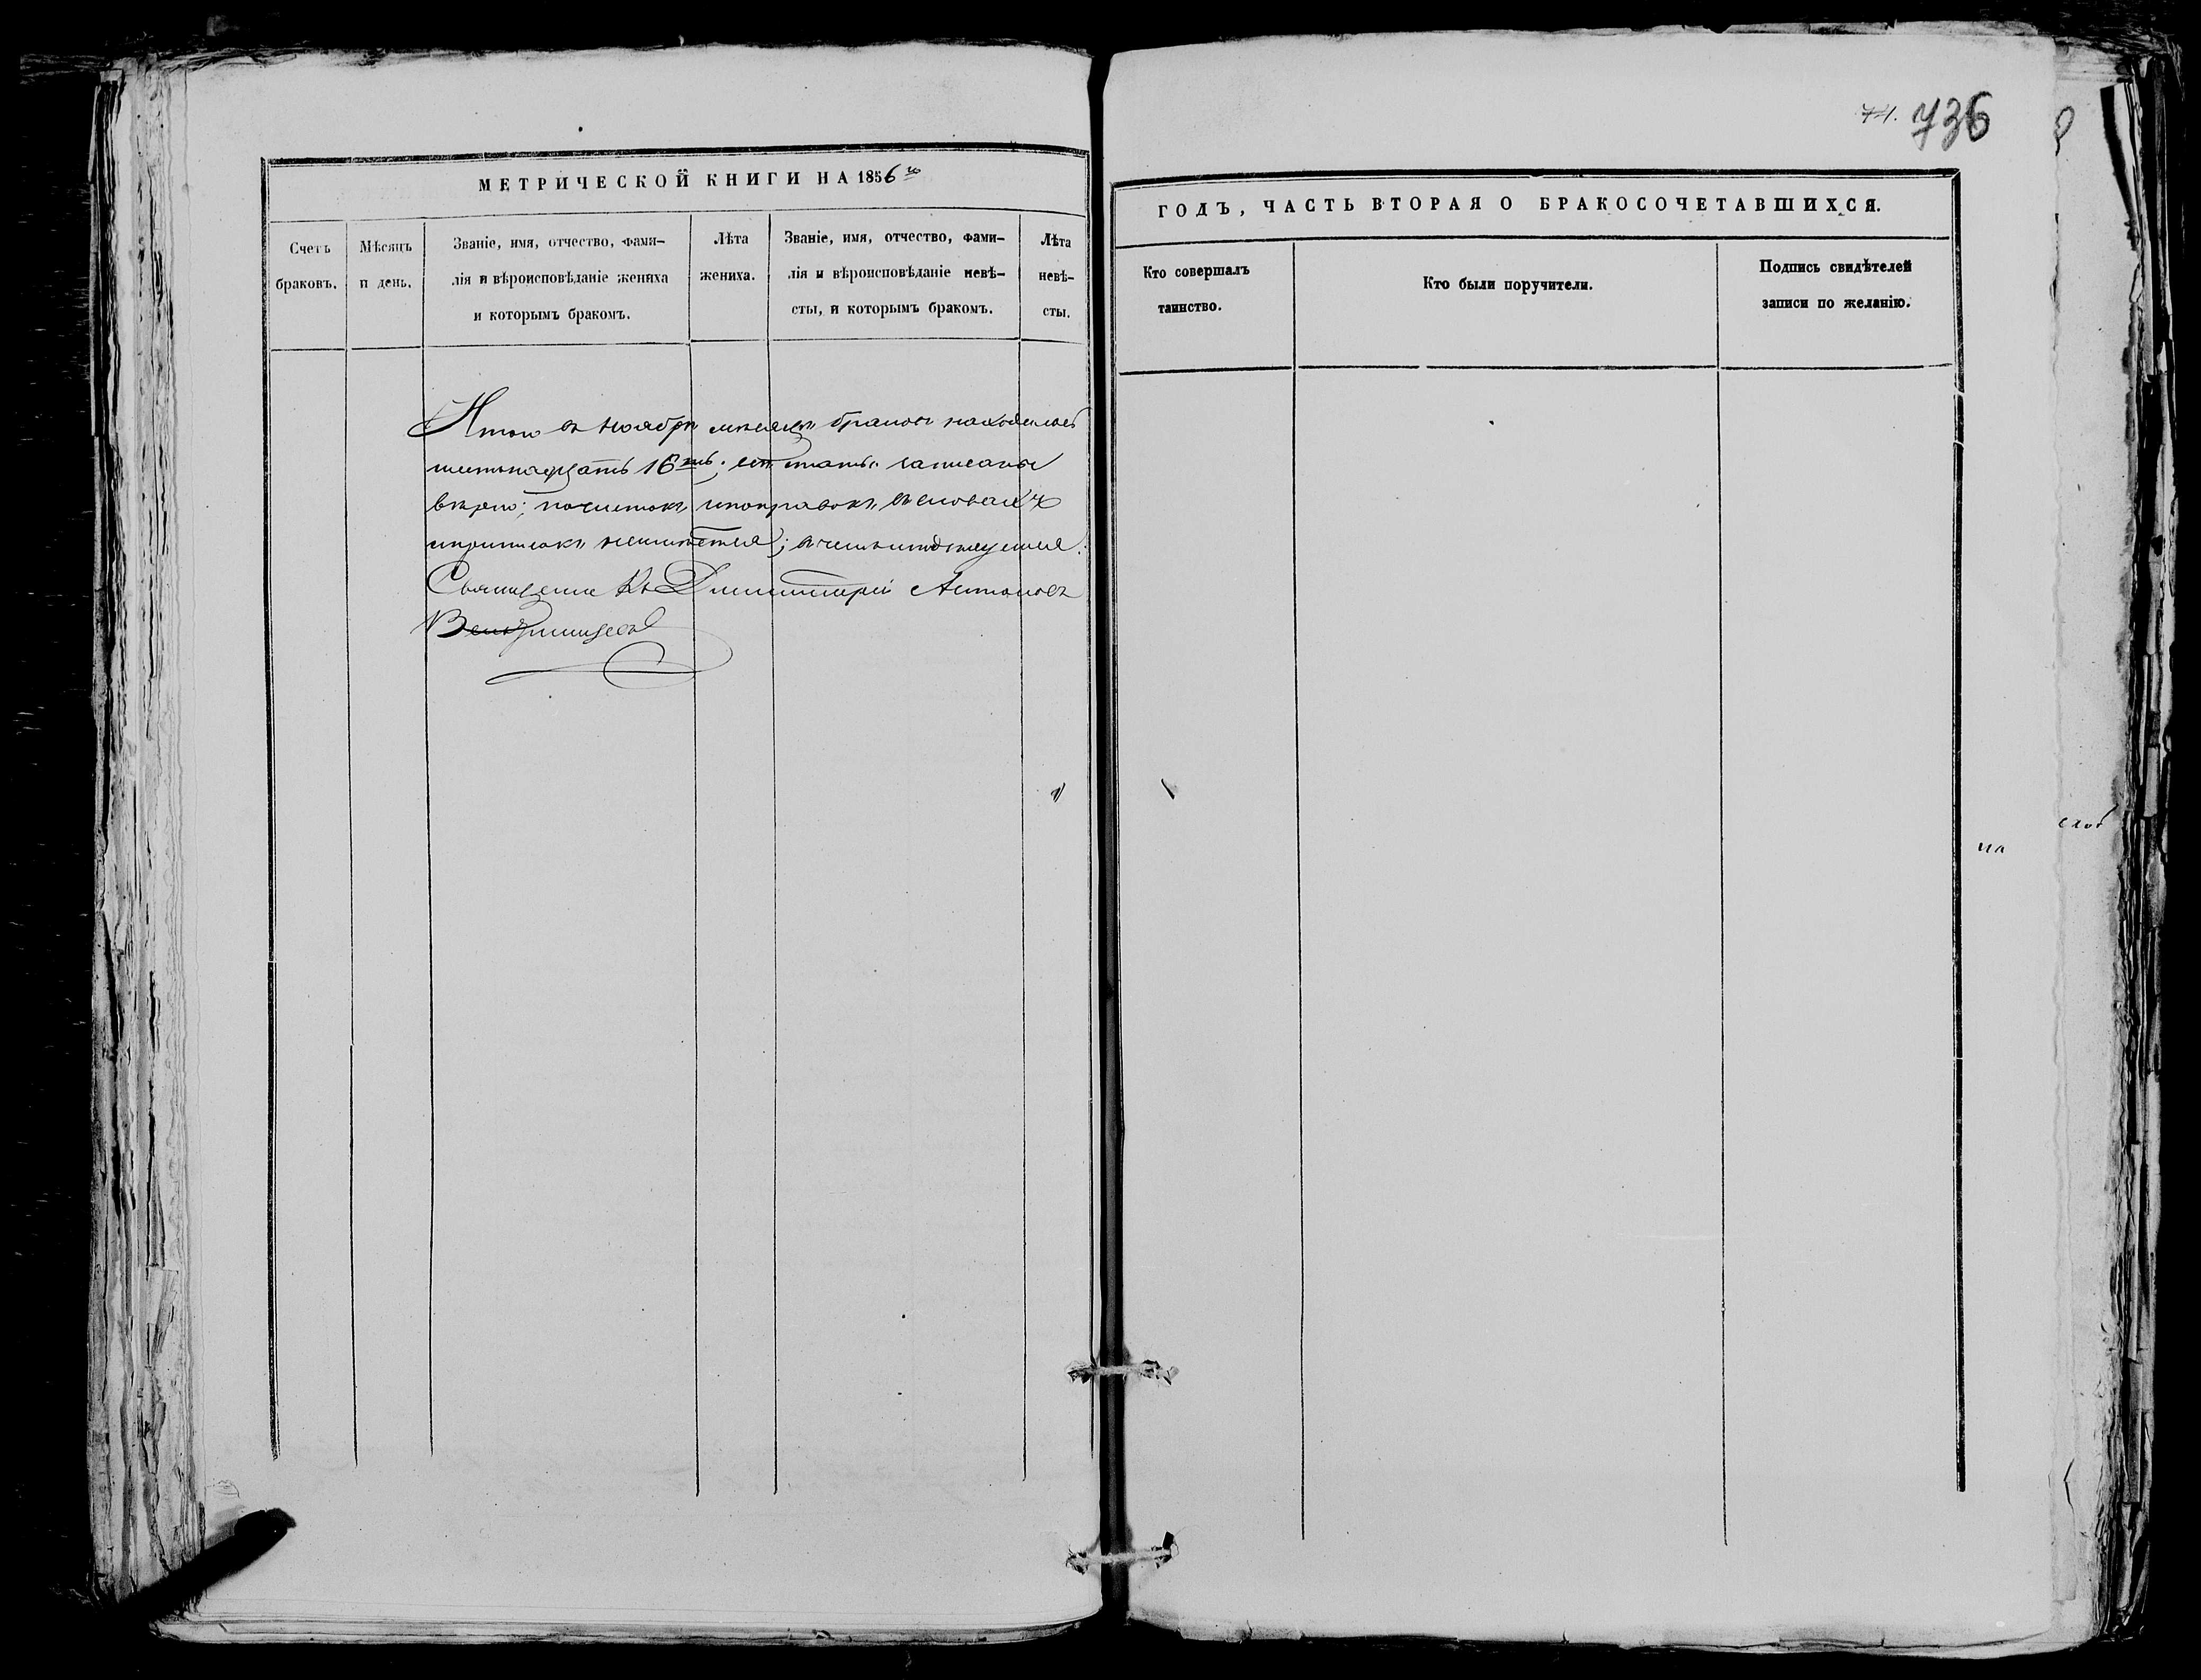 МЕТРИЧЕСКОЙ КНИГИ НА 1856го
Счетъ
браковъ.
Мѣсяцъ
и день.
Званіе, имя, отчество, фами-
лія и вѣроисповѣданіе жениха
и которымъ бракомъ.
Лѣта
жениха.
Званіе, имя, отчество, фами-
лія и вѣроисповѣданіе невѣ-
сты, и которымъ бракомъ.
Лѣта
невѣ-
сты.
Итого въ ноябрѣ мѣсяцѣ браковъ находилось
шестьнадцать 16ть; статьи записаны
вѣрно; почистокъ и поправокъ въ словахъ
и приписокъ неимѣется; въ чемъ и подписуемся.
Священникъ Димитрій Антоновъ
74. 736
ГОДЪ, ЧАСТЬ ВТОРАЯ О БРАКОСОЧЕТАВШИХСЯ.
Кто совершалъ
таинство.
Кто были поручители.
Подпись свидѣтелей
записи по желанію.